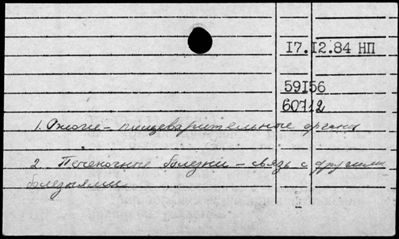 17.12.84 НП
59156
60712
1. Ожоги - пищеварительные органы
2. Печеночные болезни - связь с другими
болезнями